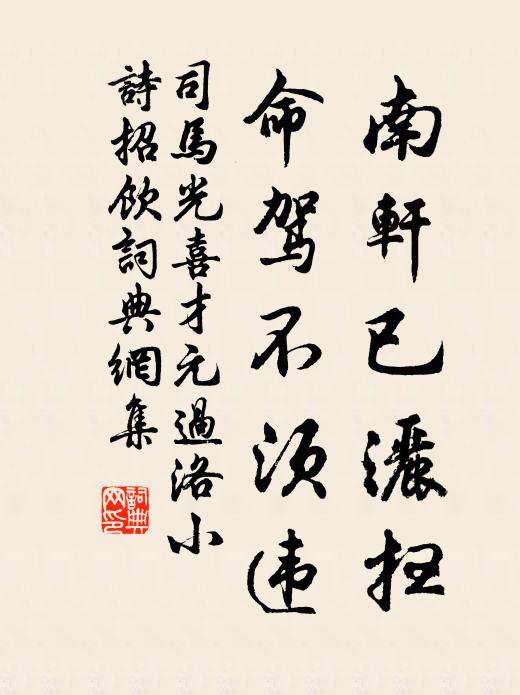 南軒已灑掃
命驾不须违
司馬光喜才元過洛小
詩招飲詞典網集
詞典
网印